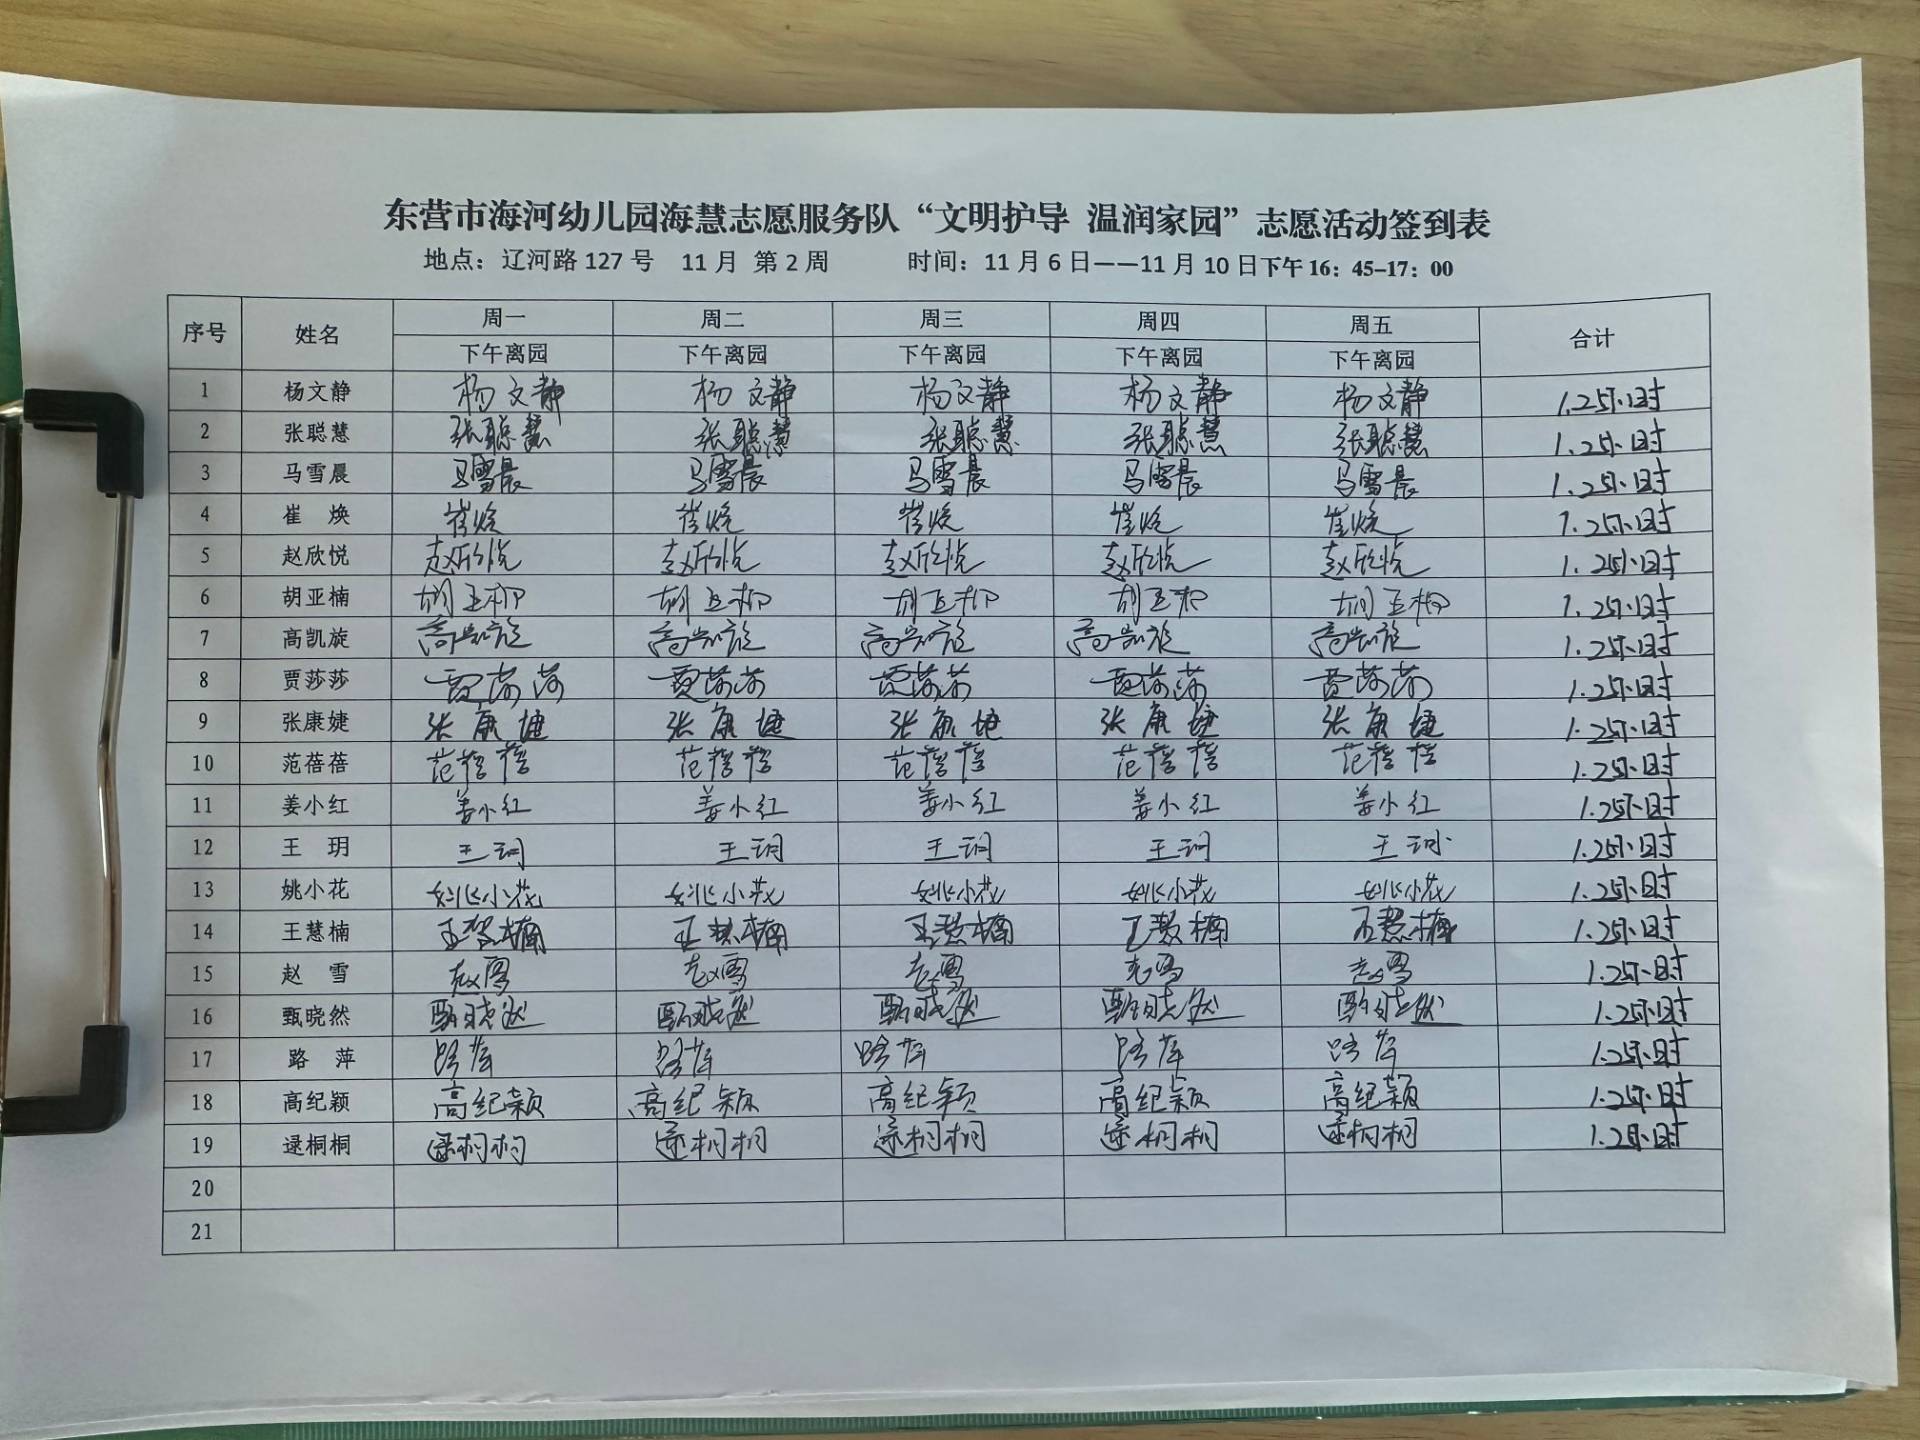 东营市海河幼儿园海慧志愿服务队“文明护导 温润家园”志愿活动签到表
地点：辽河路 127 号 11 月 第 2 周 时间：11 月 6 日——11 月 10 日下午 16：45-17：00
序号 姓名 周一 周二 周三 周四 周五 合计
下午离园 下午离园 下午离园 下午离园 下午离园
1 杨文静 杨文静 杨文静 杨文静 杨文静 杨文静 1.25小时
2 张聪慧 张聪慧 张聪慧 张聪慧 张聪慧 张聪慧 1.25小时
3 马雪晨 马雪晨 马雪晨 马雪晨 马雪晨 马雪晨 1.25小时
4 崔 焕 崔焕 崔焕 崔焕 崔焕 崔焕 1.25小时
5 赵欣悦 赵欣悦 赵欣悦 赵欣悦 赵欣悦 赵欣悦 1.25小时
6 胡亚楠 胡亚楠 胡亚楠 胡亚楠 胡亚楠 胡亚楠 1.25小时
7 高凯旋 高凯旋 高凯旋 高凯旋 高凯旋 高凯旋 1.25小时
8 贾莎莎 贾莎莎 贾莎莎 贾莎莎 贾莎莎 贾莎莎 1.25小时
9 张康婕 张康婕 张康婕 张康婕 张康婕 张康婕 1.25小时
10 范蓓蓓 范蓓蓓 范蓓蓓 范蓓蓓 范蓓蓓 范蓓蓓 1.25小时
11 姜小红 姜小红 姜小红 姜小红 姜小红 姜小红 1.25小时
12 王 玥 王玥 王玥 王玥 王玥 王玥 1.25小时
13 姚小花 姚小花 姚小花 姚小花 姚小花 姚小花 1.25小时
14 王慧楠 王慧楠 王慧楠 王慧楠 王慧楠 王慧楠 1.25小时
15 赵 雪 赵雪 赵雪 赵雪 赵雪 赵雪 1.25小时
16 甄晓然 甄晓然 甄晓然 甄晓然 甄晓然 甄晓然 1.25小时
17 路 萍 路萍 路萍 路萍 路萍 路萍 1.25小时
18 高纪颖 高纪颖 高纪颖 高纪颖 高纪颖 高纪颖 1.25小时
19 逯桐桐 逯桐桐 逯桐桐 逯桐桐 逯桐桐 逯桐桐 1.25小时
20
21